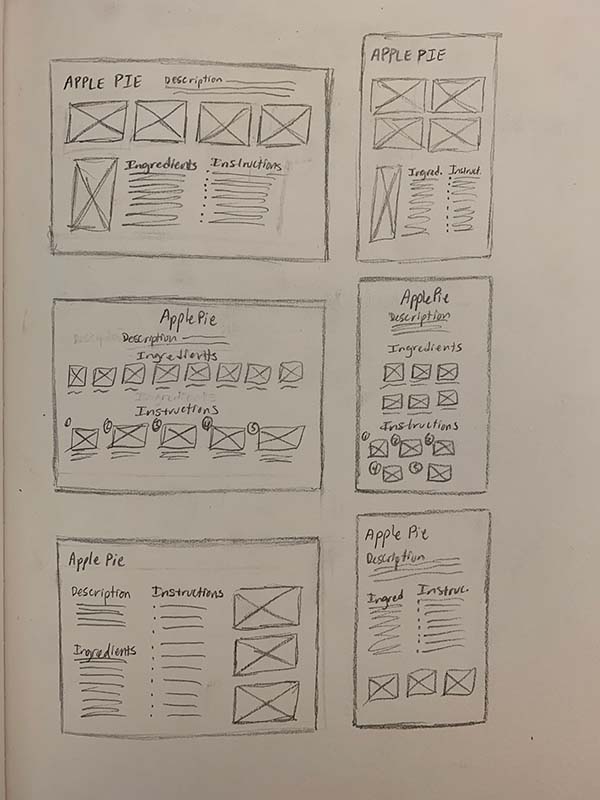 APPLE PIE Description
Ingredients Instructions
APPLE PIE
Ingred. Instruct.
Apple Pie
Description
Ingredients
Instructions
1 2 3 4 5
Apple Pie
Description
Ingredients
Instructions
1 2 3
4 5
Apple Pie
Description Instructions
Ingredients
Apple Pie
Description
Ingred Instruc.